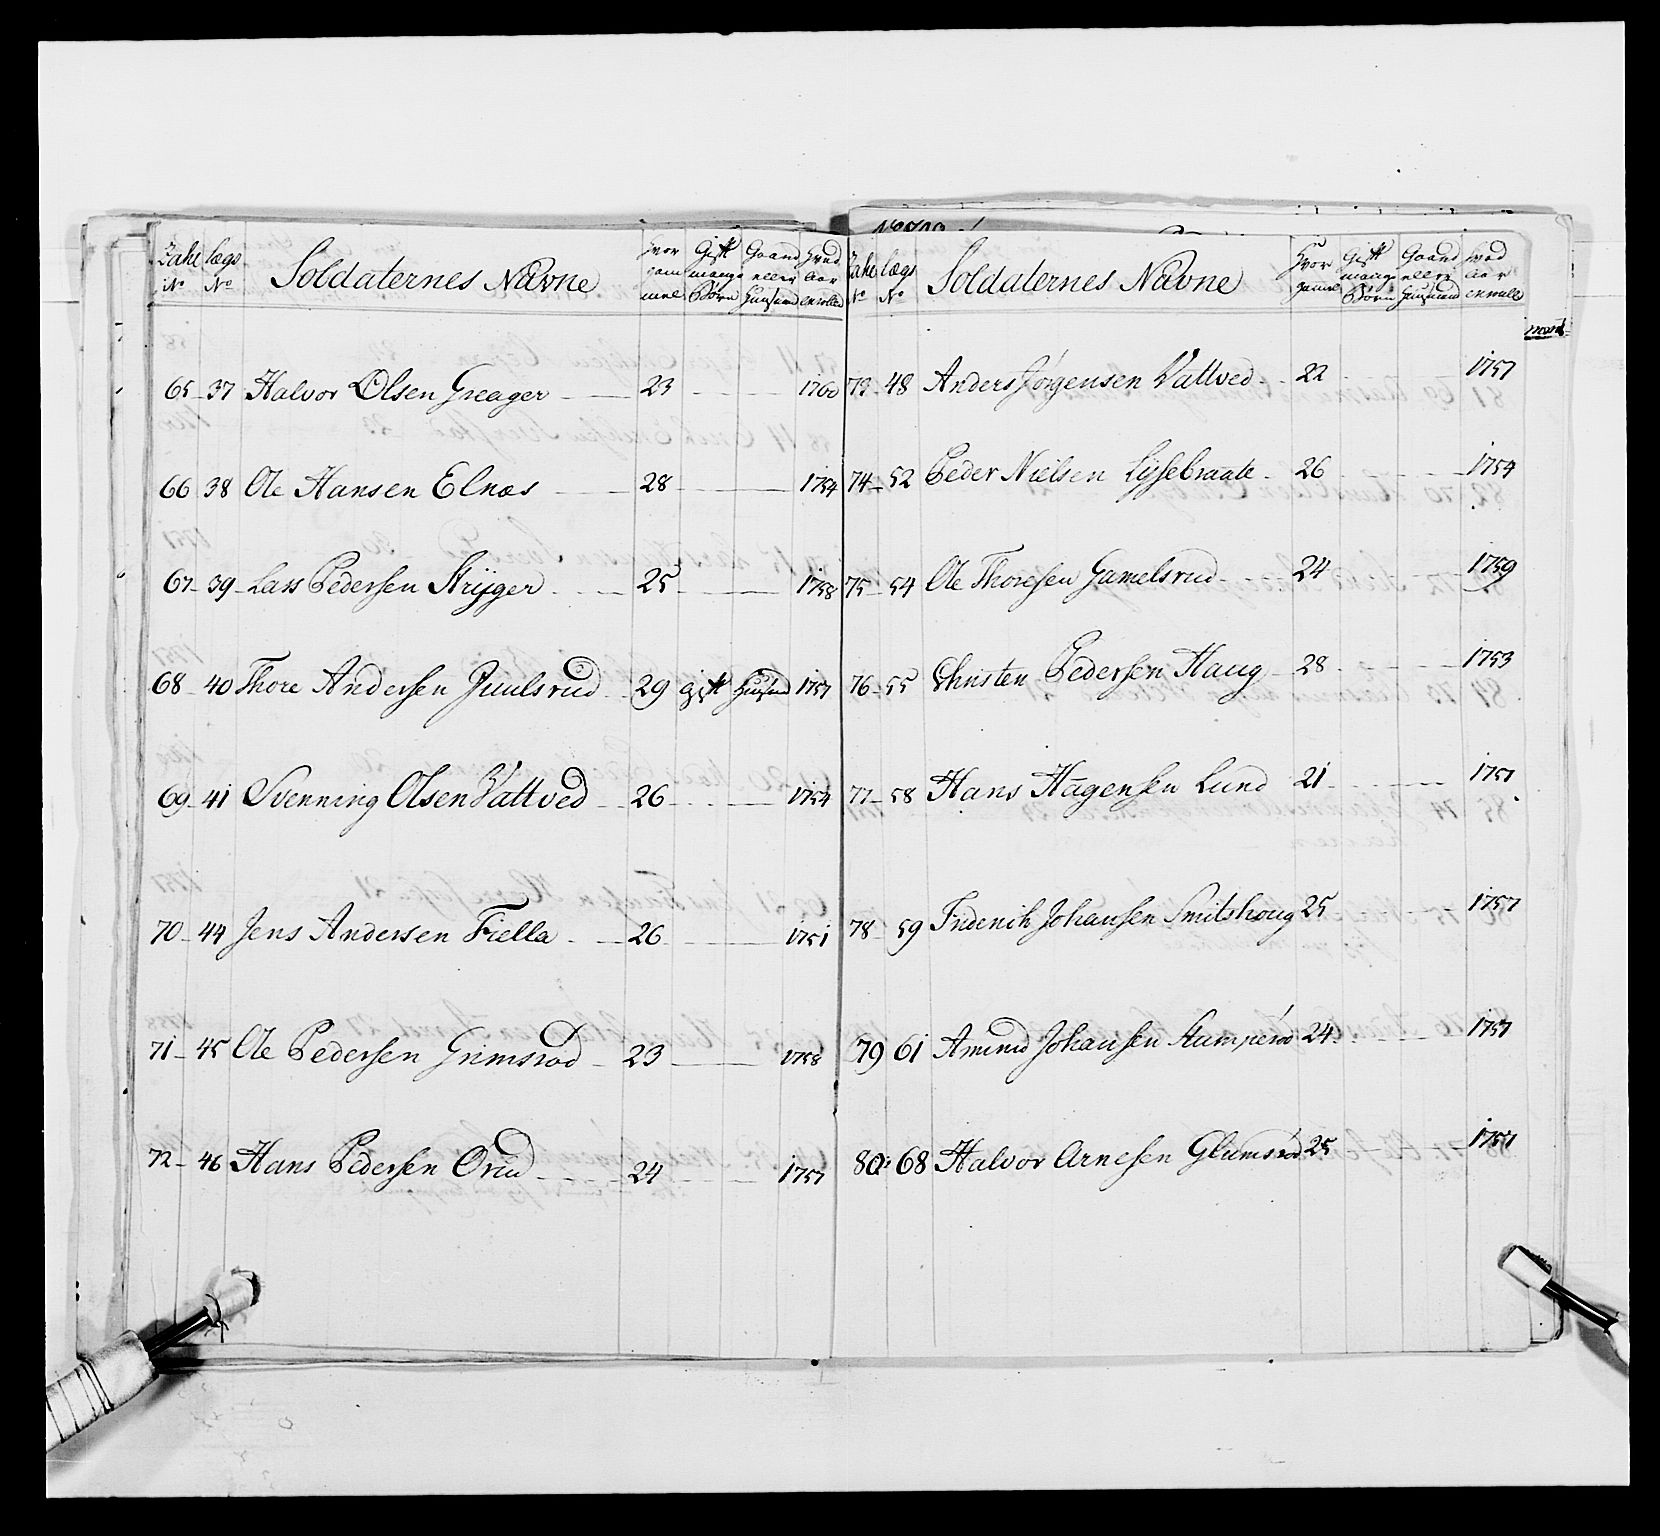 Zahl N° Lægs N° Soldaternes Navne Hvor gam mel Gift mange Børn Gaard eller Huusmand Hvad Aar enrolled
65 37 Halvor Olsen Greager 23 1760
66 38 Ole Hansen Elnæs 28 1754
67 39 Lars Pedersen Strÿger 25 1758
68 40 Thore Andersen Juulsrud 29 gift Huusmd 1757
69 41 Svenning Olsen Vattved 26 1754
70 44 Jens Andersen Fiella 26 1751
71 45 Ole Pedersen Grimsrød 23 1758
72 46 Hans Pedersen Orud 24 1757
Zahl N° Lægs N° Soldaternes Navne Hvor gamel Gift mange Børn Gaard eller Huusmand Hvad Aar enrulle
73 48 Anders Jørgensen Vattved 22 1757
74 52 Peder Nielsen Lÿsebraate 26 1754
75 54 Ole Thoresen Gamelsrud 24 1759
76 55 Christen Pedersen Haug 28 1753
77 58 Hans Hagensen Lund 21 1757
78 59 Friderich Johansen Smitshoug 25 1757
79 61 Amund Johansen 24 1757
80 68 Halvor Arnesen Glumsrød 25 1757